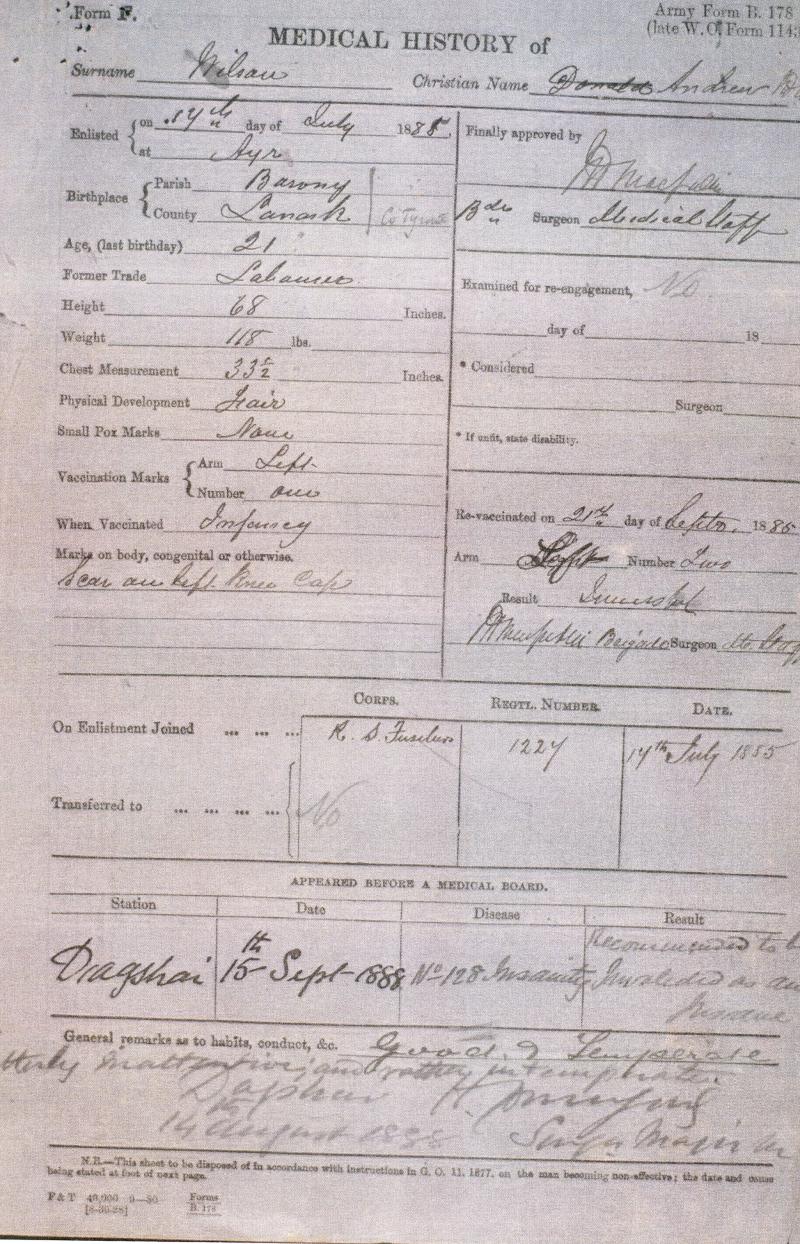 Form F.
Army Form B. 178
(late W.O. Form 1143
MEDICAL HISTORY of
Surname Wilson Christian Name Donald Andrew
Enlisted on 14th day of July 1885
at Ayr
Birthplace Parish Barony
County Lanark Co Tyrone
Age, (last birthday) 21
Former Trade Labourer
Height 68 Inches.
Weight 118 lbs.
Chest Measurement 33½ Inches.
Physical Development Fair
Small Pox Marks None
Vaccination Marks Arm Left
Number one
When Vaccinated Infancy
Marks on body, congenital or otherwise.
Scar on left Knee Cap
Finally approved by
Bde Surgeon Medical Staff
Examined for re-engagement, No
day of 18
* Considered
Surgeon
* If unfit, state disability.
Re-vaccinated on 21st day of Septr. 1885
Arm Left Number Two
Result
Brigade Surgeon
CORPS. REGTL. NUMBER. DATE.
On Enlistment Joined ... ... ... R. S. Fusiliers 1227 14th July 1885
Transferred to ... ... ... ... No
APPEARED BEFORE A MEDICAL BOARD.
Station Date Disease Result
Dagshai 15th Sept 1888 No 128 Insanity Recommended to b
Invalided as an
Insane
General remarks as to habits, conduct, &c. Good & Temperate
inattentive, and rather intemperate.
14 August 1888 Major
N.B.—This sheet to be disposed of in accordance with instructions in G. O. 11, 1877, on the man becoming non-effective; the date and cause
being stated at foot of next page.
F & T 40,000 9—80 Forms
[8-30-28] B. 178